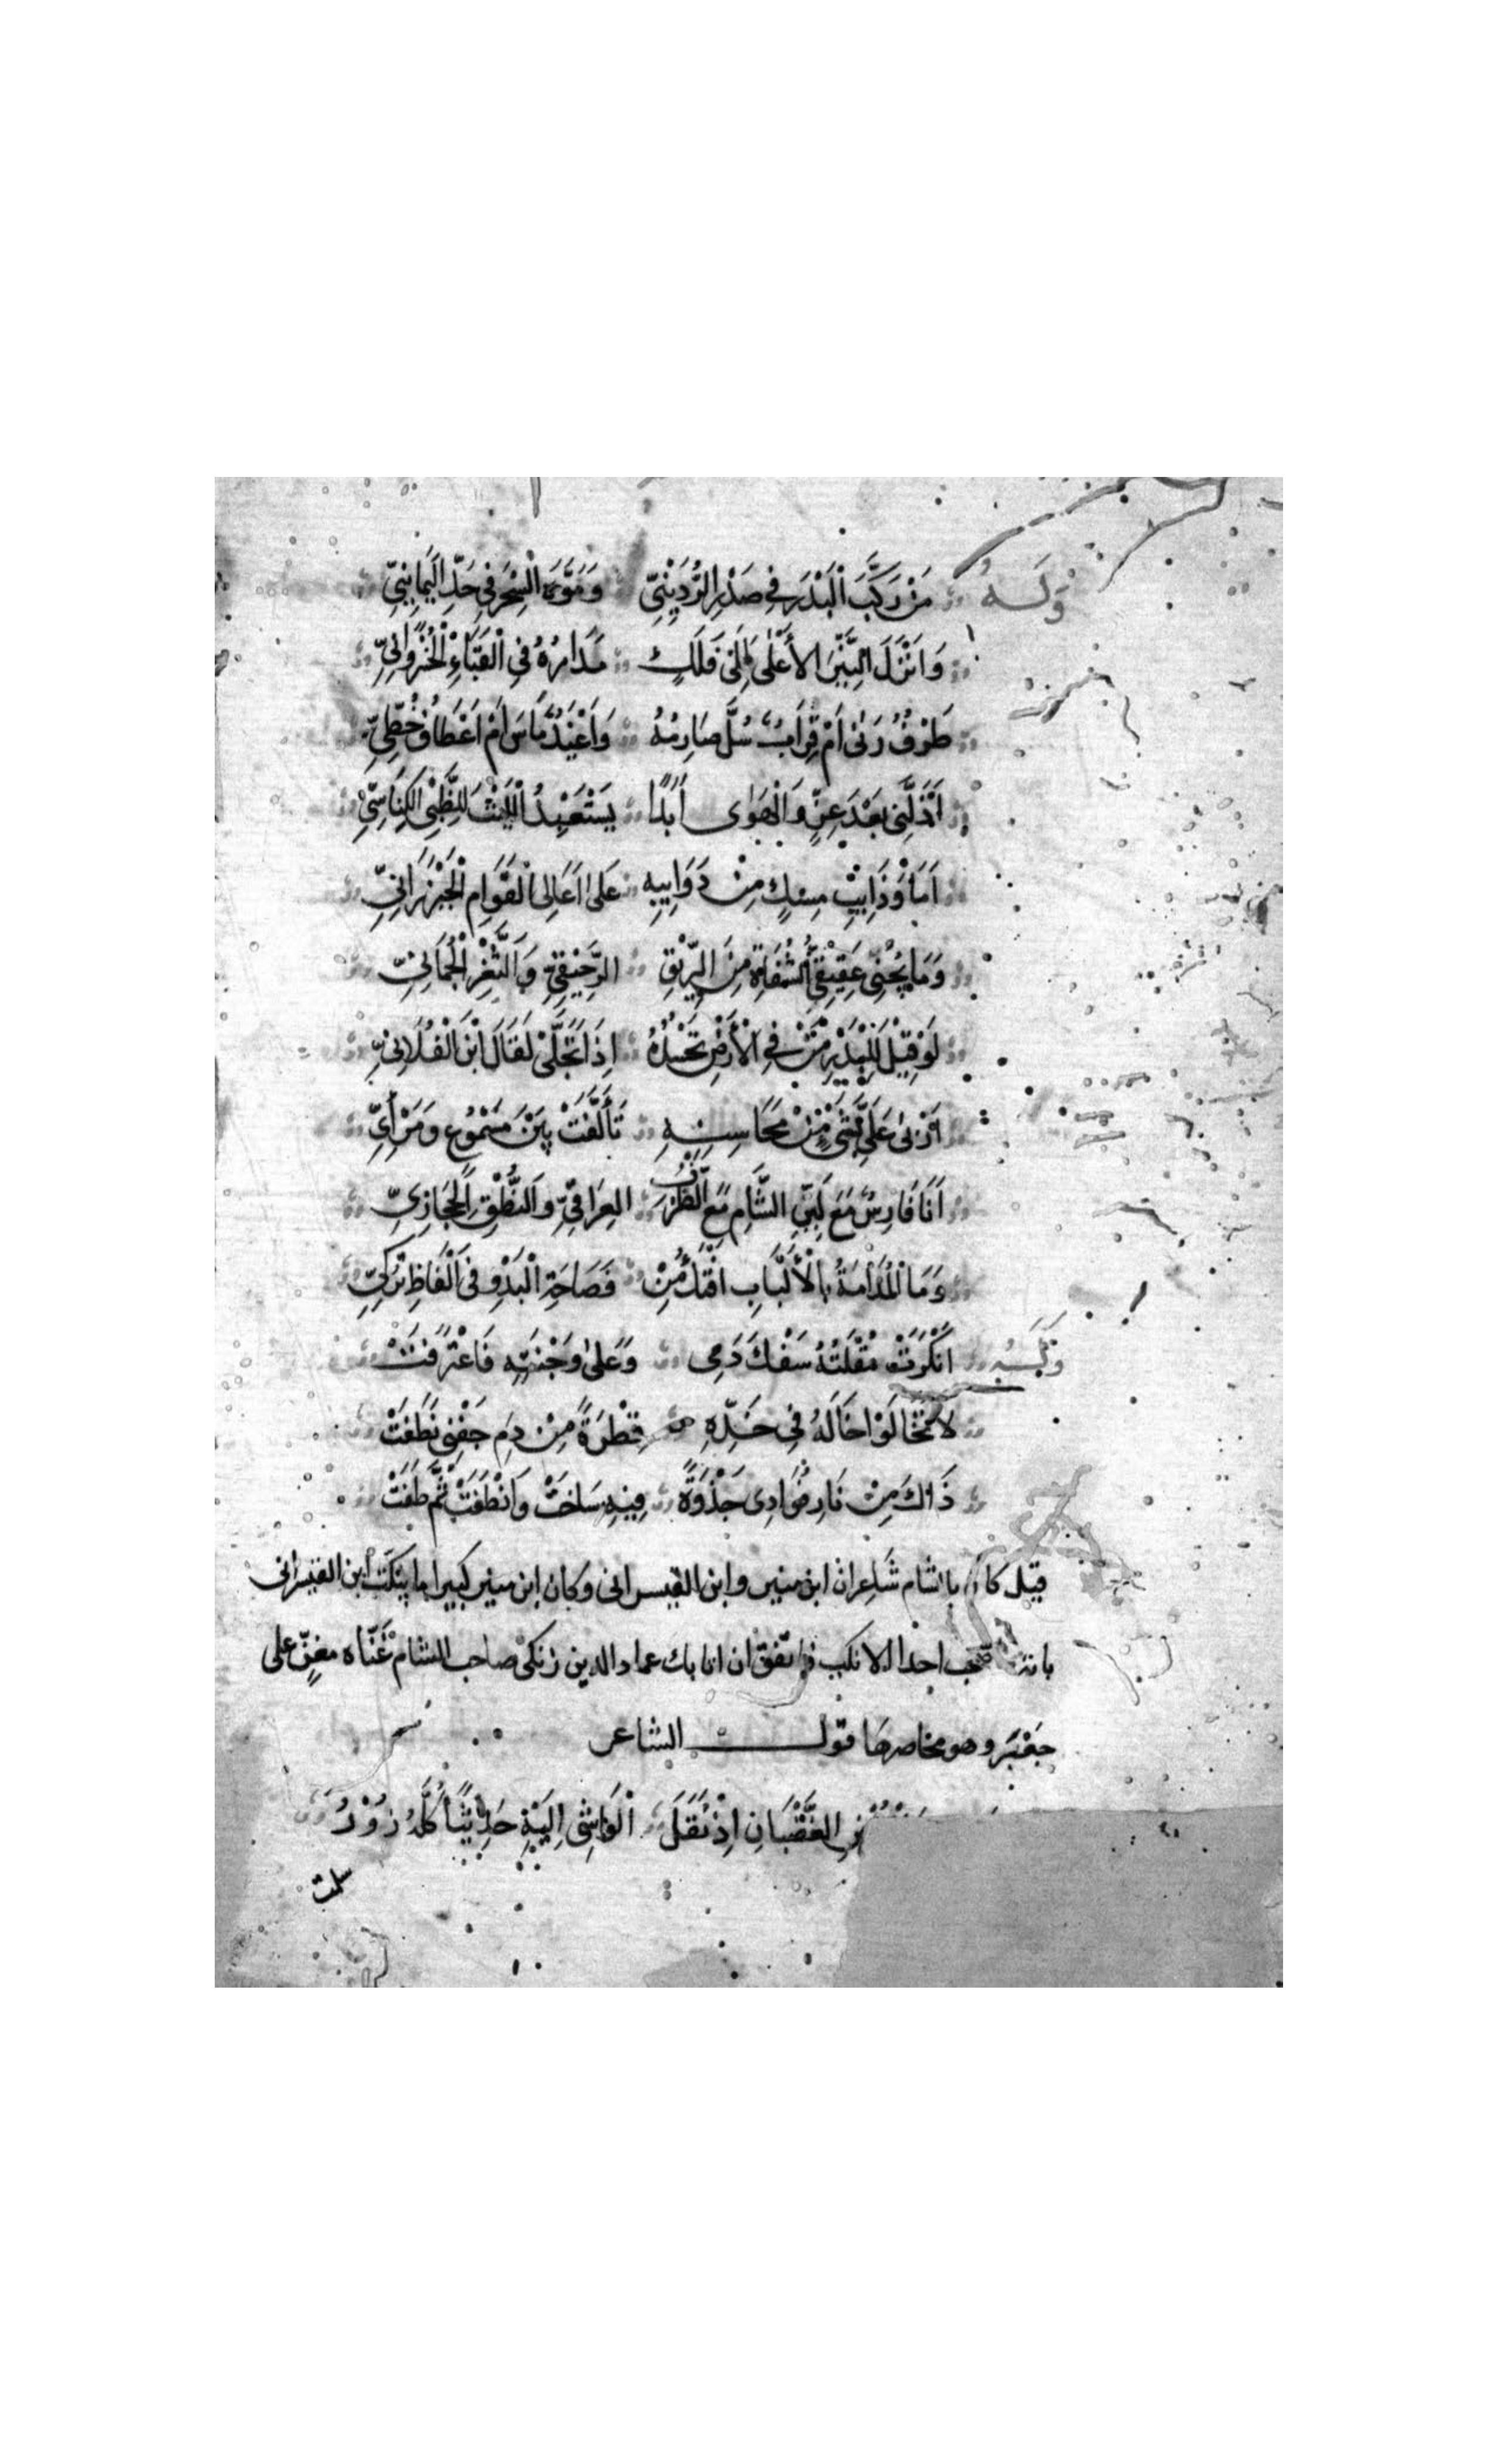 وَلَهُ مَنْ رَكَّبَ الْبَدْرَ فِي صَدْرِ الرُّدَيْنِيِّ وَمَوَّهَ السِّحْرَ فِي حَدِّ الْيَمَانِيِّ
وَأَنْزَلَ النَّيِّرَ الأَعْلَى إِلَى فَلَكٍ مَدَارُهُ فِي الْقَبَاءِ الْخُسْرُوَانِيِّ
طَرْفٌ رَنَى أَمْ قِرَابٌ سُلَّ صَارِمُهُ وَأَغْيَدٌ مَاسَ أَمْ أَعْطَافُ خَطِّيِّ
أَذَلَّنِي بَعْدَ عِزٍّ وَالْهَوَى أَبَدًا يَسْتَعْبِدُ اللَّيْثَ لِلظَّبْيِ الْكِنَاسِيِّ
أَمَا وَذَائِبِ مِسْكٍ مِنْ ذَوَائِبِهِ عَلَى أَعَالِي الْقَوَامِ الْخَيْزُرَانِيِّ
وَمَا يُجِنُّ عَقِيقِيُّ الشِّفَاهِ مِنَ الرِّيقِ الرَّحِيقِيِّ وَالثَّغْرِ الْجُمَانِيِّ
لَوْ قِيلَ لِلْبَدْرِ مَنْ فِي الْأَرْضِ تَحْسُدُهُ إِذَا تَجَلَّى لَقَالَ ابْنَ الْفُلَانِيِّ
أَرْبَى عَلَيَّ بِشَتَّى مِنْ مَحَاسِنِهِ تَأَلَّفَتْ بَيْنَ مَسْمُوعٍ وَمَرْأِيِّ
أَنَا فَارِسٌ مَعَ لِينِ الشَّامِ مَعَ الظَّرْفِ الْعِرَاقِيِّ وَالنُّطْقِ الْحِجَازِيِّ
وَمَا الْمُدَامَةُ بِالْأَلْبَابِ أَفْتَكُ مِنْ فَصَاحَةِ الْبَدْوِ فِي أَلْفَاظِ تُرْكِيِّ
أَنْكَرَتْ مُقْلَتُهُ سَفْكَ دَمِي وَعَلَى وَجْنَتِهِ فَاعْتَرَفَتْ
لَا تَخَالُوا خَالَهُ فِي خَدِّهِ قَطْرَةً مِنْ دَمِ جَفْنِي نَطَفَتْ
ذَاكَ مِنْ نَارِ فُؤَادِي جَذْوَةٌ فِيهِ سَاخَتْ وَانْطَفَتْ ثُمَّ طَفَتْ
قيل كان بالشام شاعران ابن منير وابن القيسراني وكان ابن منير كثيرا ما يبكت ابن القيسراني
بانه ما صحب احدا الا نكب فاتفق ان اتابك عماد الدين زنكي صاحب الشام غَنّاه مغنٍّ على
جعبر وهو محاصرها قول الشاعر
الْغَضْبَانِ إِذْ نَقَلَ الْوَاشِي إِلَيْهِ حَدِيثًا كُلُّهُ زُورُ